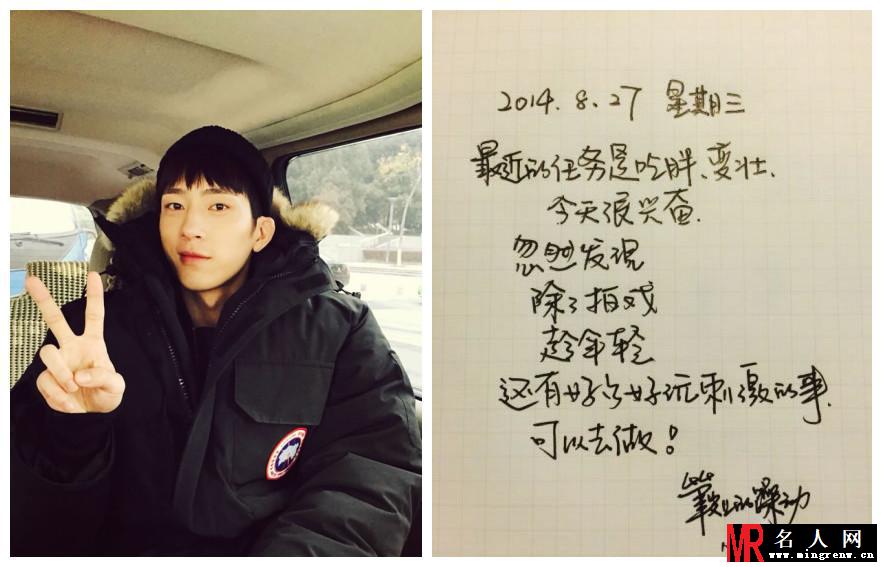 2014.8.27 星期三
最近的任务是吃胖、变壮.
今天很兴奋.
忽然发现
除了拍戏
趁年轻
还有好多好玩刺激的事.
可以去做！
的躁动
MR 名人网
www.mingrenw.cn